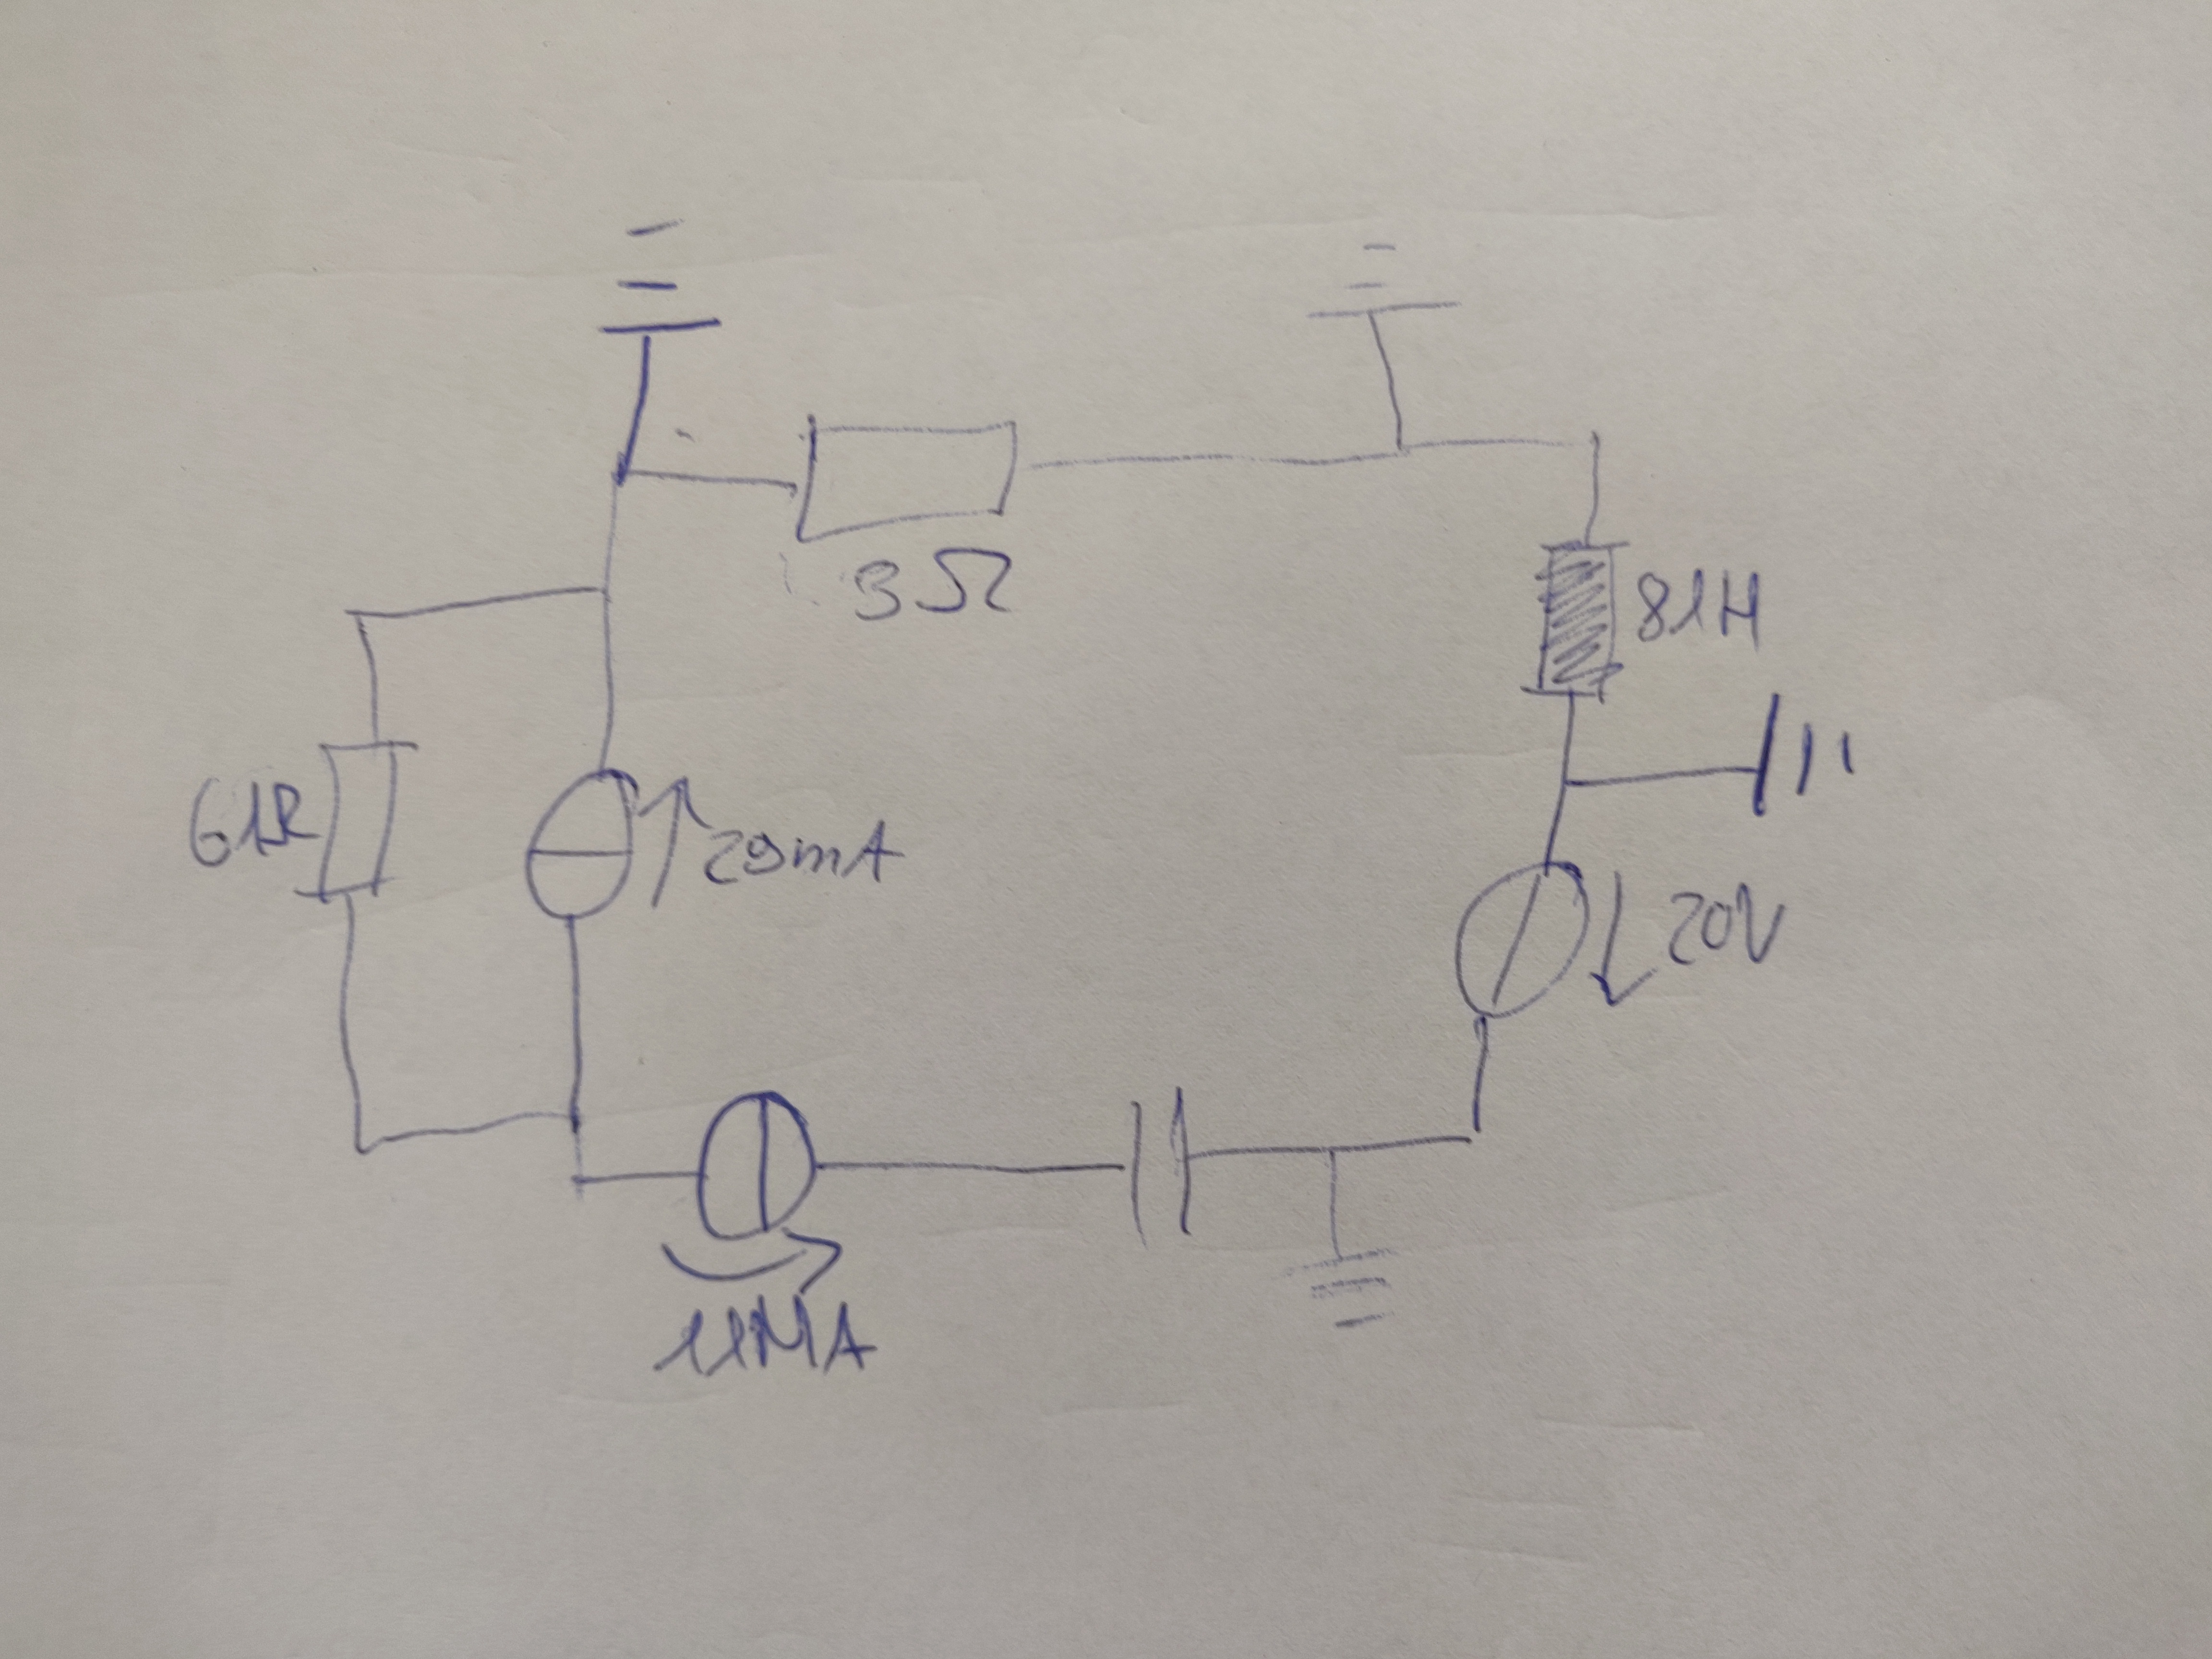 3Ω
81H
61R
29mA
20V
11MA